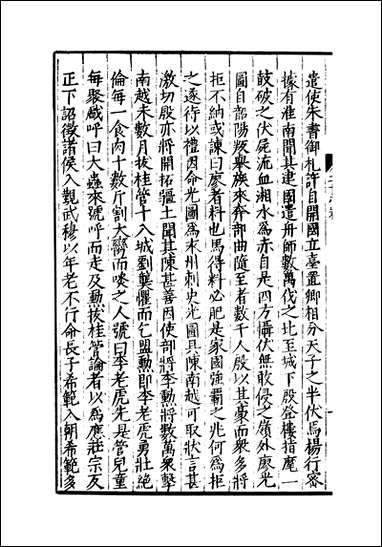 遣使朱書御札許自開國立臺置卿相分天子之半伏焉楊行密
據有淮南聞其建國遣舟師數萬伐之比至城下殷登樓指麾一
鼓破之伏尸流血湘水爲赤自是四方懾伏無敢侵之嶺外廖光
圖自部陽挈舉族來奔部曲隨至者數千人殷以其豪而衆多將
拒不納或諫曰廖者料也馬得料必肥是家國強霸之兆何爲拒
之遂待以禮因命光圖爲永州刺史光圖具陳南越可取狀言甚
激切殷亦將開拓疆土聞其陳甚善因使部將李勳將數萬衆擊
南越未數月拔桂管十八城劉龑懼而乞盟勳即李老虎勇壯絶
倫每一食肉十數斤割大臠而啖之人號曰李老虎先是管兒童
每聚戲呼曰大蟲來號呼而走及勳拔桂管論者以爲應莊宗反
正下詔徵諸侯入覲武穆以年老不行命長子希範入朝希範多